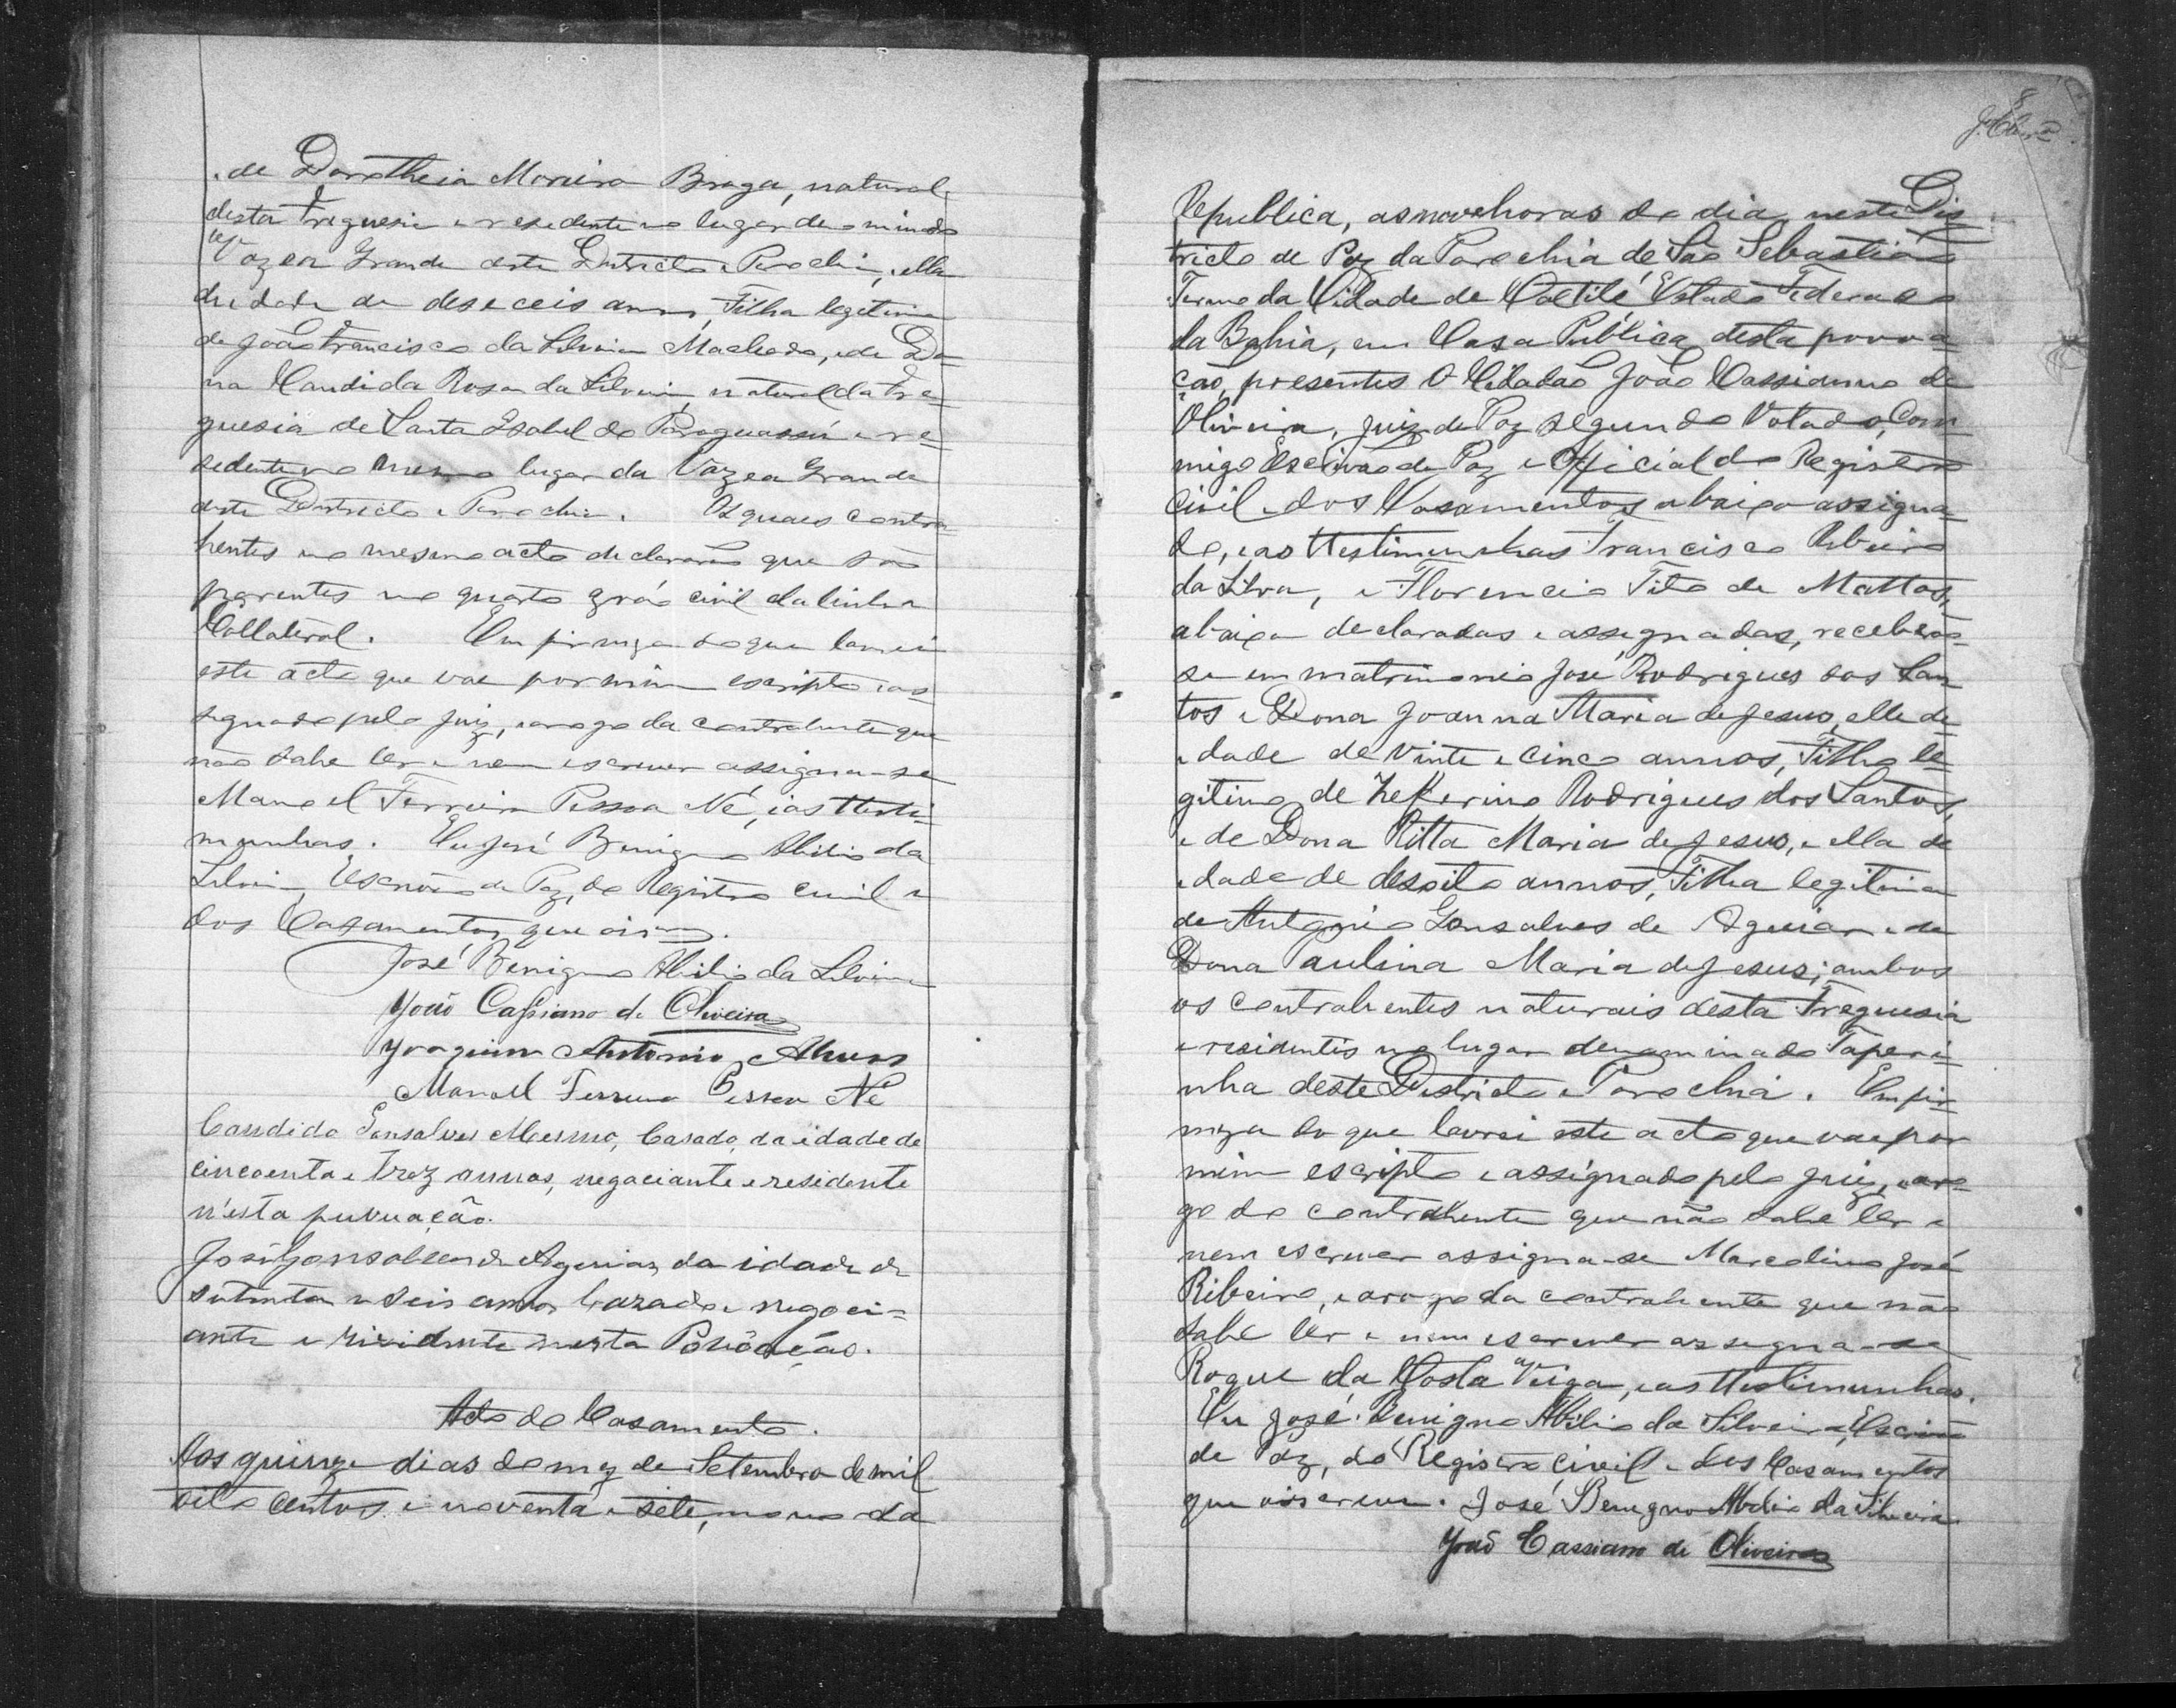 de Dorotheia Moreira Braga, natural
desta Freguesia e resedente no lugar denominado
Vazea Grande deste Districto e Parochia, ella
de idade de deseceis annos, Filha legitima
de João Francisco da Silveira Machado, e de Do-
na Candida Rosa da Silveira, natural da Fre-
guesia de Santa Isabel do Paraguassú e re-
sedente no mesmo lugar da Vazea Grande
deste Districto e Parochia. Os quaes contra-
hentes no mesmo acto declararão que são
parentes no quarto gráo civil da linha
Collateral. Em firmeza do que lavrei
este acto que vae por mim escripto e as-
segnado pelo Juiz, e arogo da contrahente que
não sabe ler e nem escrever assigna-se
Manoel Ferreira Pessoa Né, e as ttesti-
munhas. Eu José Benigno Abilio da
Silveira, Escrivão de Paz, do Registro civil e
dos Casamentos que
José Benigno Abilio da Silveira
João Cassiano de Oliveira
Joaquim Antonio Alves
Manoel Ferreira Pessoa Né
Candido Gonsalves, Casado, da idade de
cincoenta e trez annos, negaciante e residente
n'esta puvuação.
José Gonsalves de Aguiar, da idade de
setenta e seis annos Cazado e negoci-
ante e rizidente nesta Povoação.
Acto do Casamento.
Aos quinze dias do mez de Setembro de mil
oito centos e noventa e sete, nono da
8
Republica, as nove horas do dia, neste Dis
tricto de Paz da Parochia de São Sebastião
Termo da Cidade de Caetité Estado Federado
da Bahia, em Casa Publica desta povoa-
ção, presentes O Cidadão João Cassianno de
Oliveira, Juiz de Paz segundo Votado, Com-
migo Escrivão de Paz e Official do Registro
civil e dos Casamentos abaixo assigna-
do, e as ttestimunhas Francisco Ribeiro
da Silva, e Florencio Tito de Mattos,
abaixo declaradas e assegnadas, receberão-
se em matrimonio José Rodrigues dos San
tos e Dona Joanna Maria de Jesus, elle de
idade de vinte e cinco annos, Filho le-
gitimo de Zeferino Rodrigues dos Santos,
e de Dona Ritta Maria de Jesus, e ella de
idade de desoito annos, Filha legitima
de Antonio Gonsalves de Aguiar e de
Dona Paulina Maria de Jesus; ambos
os contrahentes naturais desta Freguesia
e residentis no lugar denominado Taperi-
nha deste Destricto e Parochia. Em fir-
meza do que lavrei este acto que vae por
mim escripto e assignado pelo Juiz, e aro-
go do contrahente que não sabe ler e
nem escrever assigna-se Marcolino José
Ribeiro, e arogo da contrahente que não
sabe ler e nem escrever assegna-se
Roque da Costa Veiga, e as ttestimunhas.
Eu José Benigno Abilio da Silveira, Escrivão
de Paz, do Registro civil e dos Casamentos
que o escrevi. José Benigno Abilio da Silveira.
João Cassiano de Oliveira